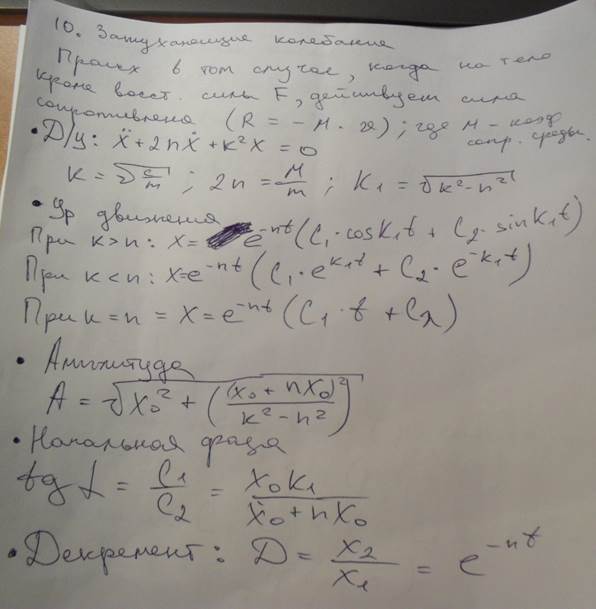 10. Затухающие колебания
Происх в том случае, когда на тело
кроме восст. силы F, действует сила
сопротивлен (R = -M · v); где M - коэф
сопр. среды.
• Д/у: ẍ + 2nẋ + k²x = 0
K = √(c/m) ; 2n = M/m ; K₁ = √(k²-n²)
• Ур движения
При k>n: x = e^(-nt) (C₁·cosk₁t + C₂·sink₁t)
При k<n: x=e^(-nt) (C₁·e^(k₁t) + C₂·e^(-k₁t))
При k=n = x=e^(-nt) (C₁·t + C₂)
• Амплитуда
A = √(x₀² + ((ẋ₀ + nx₀)²/(k²-n²)))
• Начальная фаза
tg α = C₁/C₂ = x₀k₁/(ẋ₀+nx₀)
• Декремент: D = x₂/x₁ = e^(-nt)